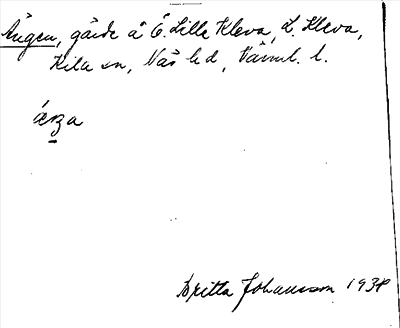 Ängen, gärde å Ö. Lille Kleva, L. Kleva,
Kila sn, Näs hd, Värml. l.
Britta Johansson 1938